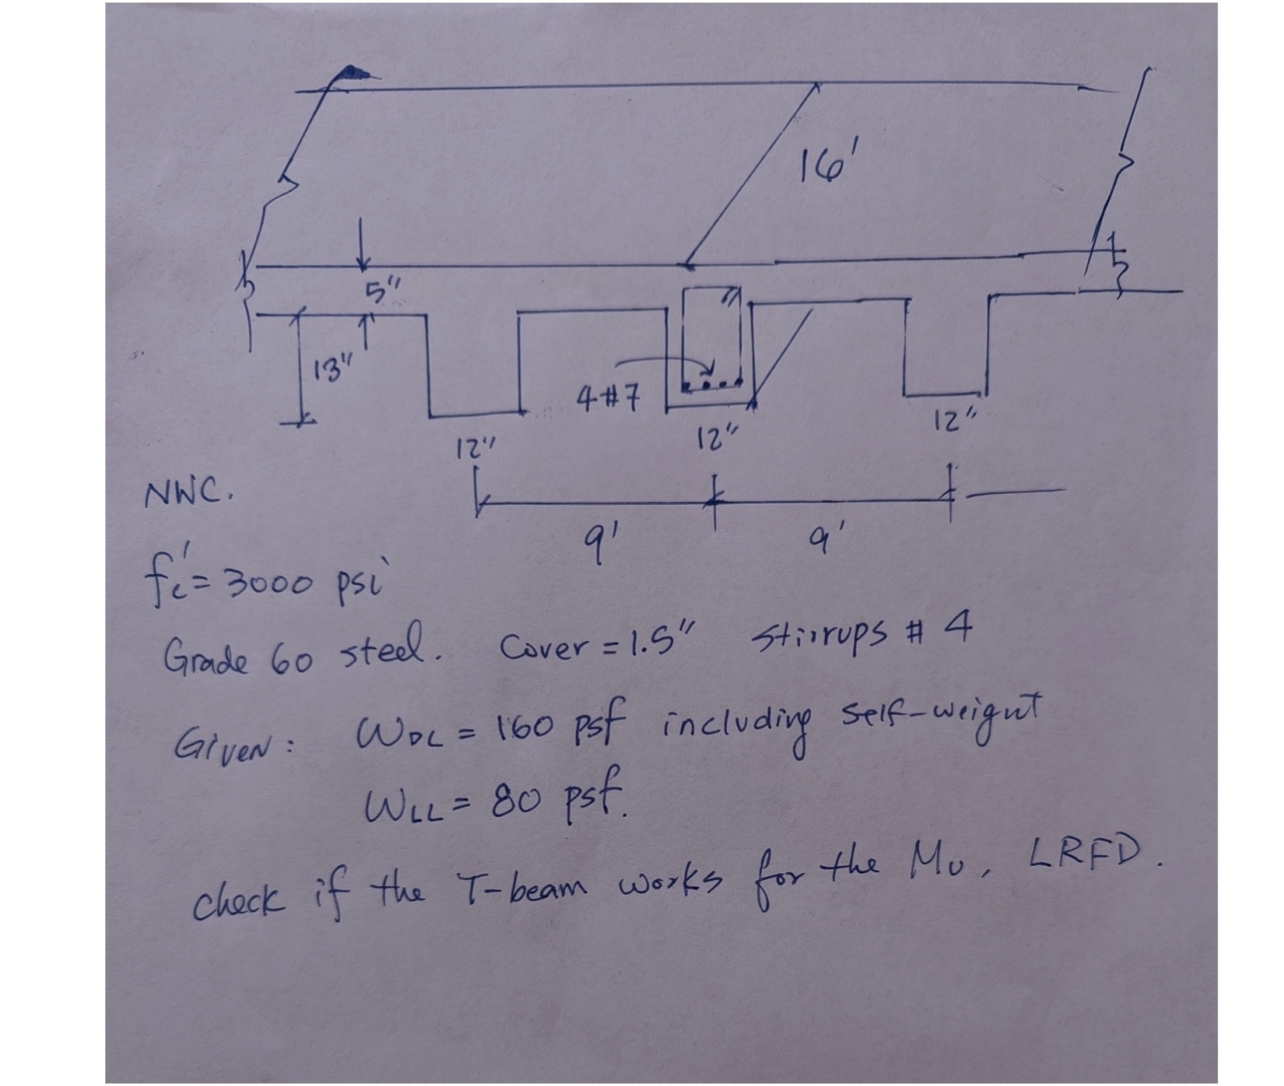 16'
5"
13"
4-#7
12"
12"
12"
9'
9'
NWC.
f'c = 3000 psi
Grade 60 steel. Cover = 1.5" stirrups # 4
Given: WDL = 160 psf including self-weignt
WLL = 80 psf.
check if the T-beam works for the Mu, LRFD.